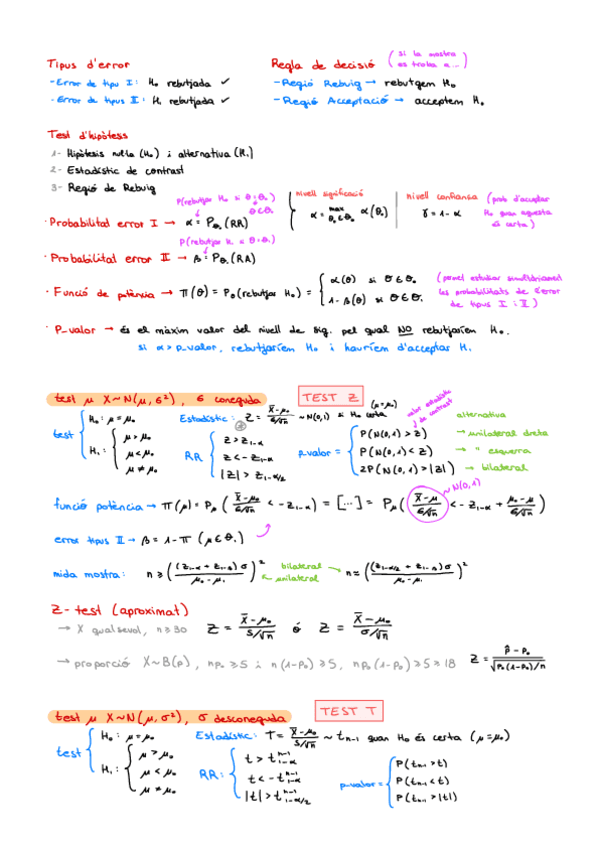 Tipus d'error
- Error de tipus I: H₀ rebutjada ✓
- Error de tipus II: H₁ rebutjada ✓
Regla de decisió (si la mostra es troba a ...)
- Regió Rebuig → rebutgem H₀
- Regió Acceptació → acceptem H₀
Test d'hipòtesis
1- Hipòtesis nul·la (H₀) i alternativa (H₁)
2- Estadístic de contrast
3- Regió de Rebuig
P(rebutjar H₀ si θ=θ₀)
θ∈Θ₀
· Probabilitat error I → α = P_θ₀(RA)
nivell significació
α = max θ₀∈Θ₀ α(θ₀)
nivell confiança
γ = 1-α
(prob. d'acceptar
H₀ quan aquesta
és certa)
P(rebutjar H₁ si θ=θ₁)
· Probabilitat error II → β = P_θ₁(RA)
· Funció de potència → π(θ) = P_θ(rebutjar H₀) = { α(θ) si θ∈Θ₀
1-β(θ) si θ∈Θ₁
(permet estudiar simultàniament
les probabilitats de l'error
de tipus I i II)
· P_valor → és el màxim valor del nivell de sig. pel qual NO rebutjaríem H₀.
si α > p_valor, rebutjaríem H₀ i hauríem d'acceptar H₁
test μ X~N(μ,σ²), σ coneguda
TEST Z
test { H₀: μ=μ₀
H₁: { μ>μ₀
μ<μ₀
μ≠μ₀
Estadístic: Z = (X̄-μ₀)/(σ/√n) ~ N(0,1) si H₀ certa (μ=μ₀)
RR { z > z₁₋α
z < -z₁₋α
|z| > z₁₋α/₂
valor estadístic
de contrast
p-valor = { P(N(0,1) > z)
P(N(0,1) < z)
2P(N(0,1) > |z|)
alternativa
→ unilateral dreta
→ " esquerra
→ bilateral
funció potència → π(μ) = P_μ( (X̄-μ₀)/(σ/√n) < -z₁₋α ) = [...] = P_μ( (X̄-μ)/(σ/√n) < -z₁₋α + (μ₀-μ)/(σ/√n) )
~ N(0,1)
error tipus II → β = 1-π (μ∈Θ₁)
mida mostra: n ≥ ( ((z₁₋α + z₁₋β) σ)/(μ₀-μ₁) )²
bilateral →
← unilateral
n ≈ ( ((z₁₋α/₂ + z₁₋β) σ)/(μ₀-μ₁) )²
Z-test (aproximat)
→ X qualsevol, n≥30 Z = (X̄-μ₀)/(S/√n) ó Z = (X̄-μ₀)/(σ/√n)
→ proporció X~B(p), np₀ ≥ 5 i n(1-p₀) ≥ 5, np₀(1-p₀) ≥ 5 ≥ 18 Z = (p̂-p₀)/√(p₀(1-p₀)/n)
test μ X~N(μ,σ²), σ desconeguda
TEST T
test { H₀: μ=μ₀
H₁: { μ>μ₀
μ<μ₀
μ≠μ₀
Estadístic: T = (X̄-μ₀)/(S/√n) ~ tₙ₋₁ quan H₀ és certa (μ=μ₀)
RR: { t > t₁₋αⁿ⁻¹
t < -t₁₋αⁿ⁻¹
|t| > t₁₋α/₂ⁿ⁻¹
p-valor = { P(tₙ₋₁ > t)
P(tₙ₋₁ < t)
P(tₙ₋₁ > |t|)